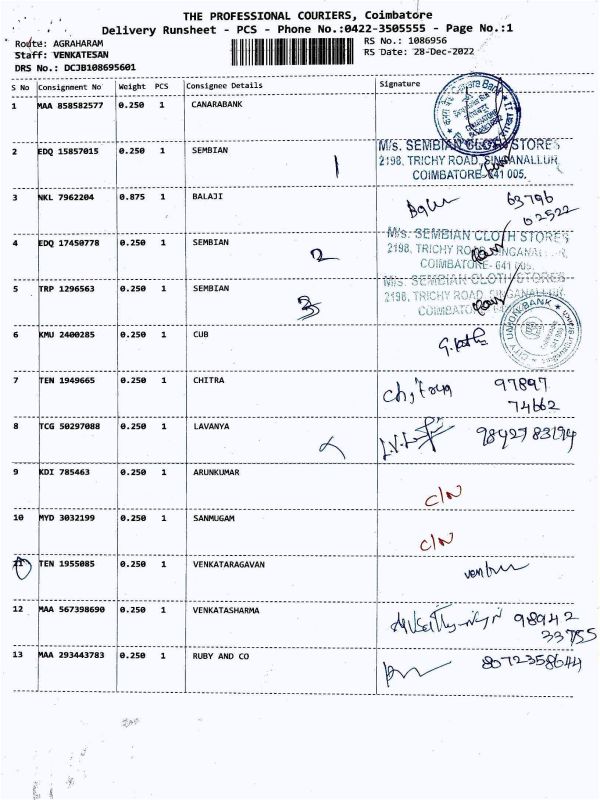 THE PROFESSIONAL COURIERS, Coimbatore
Delivery Runsheet - PCS - Phone No.:0422-3505555 - Page No.:1
Route: AGRAHARAM
RS No.: 1086956
Staff: VENKATESAN
RS Date: 28-Dec-2022
DRS No.: DCJB108695601
S No Consignment No Weight PCS Consignee Details Signature
1 MAA 858582577 0.250 1 CANARABANK
2 EDQ 15857015 0.250 1 SEMBIAN 1
M/s. SEMBIAN CLOTH STORES
2198, TRICHY ROAD, SINGANALLUR,
COIMBATORE-641 005.
3 NKL 7962204 0.875 1 BALAJI 63796
02522
4 EDQ 17450778 0.250 1 SEMBIAN 2
M/s. SEMBIAN CLOTH STORES
2198, TRICHY ROAD, SINGANALLUR,
COIMBATORE- 641 005.
5 TRP 1296563 0.250 1 SEMBIAN 3
M/s. SEMBIAN CLOTH STORES
2198, TRICHY ROAD, SINGANALLUR,
COIMBATORE
6 KMU 2400285 0.250 1 CUB
CITY UNION BANK
7 TEN 1949665 0.250 1 CHITRA 97897
74662
8 TCG 50297088 0.250 1 LAVANYA
9 KDI 785463 0.250 1 ARUNKUMAR C/N
10 MYD 3032199 0.250 1 SANMUGAM C/N
11 TEN 1955085 0.250 1 VENKATARAGAVAN
12 MAA 567398690 0.250 1 VENKATASHARMA 98942
33755
13 MAA 293443783 0.250 1 RUBY AND CO 8072358644